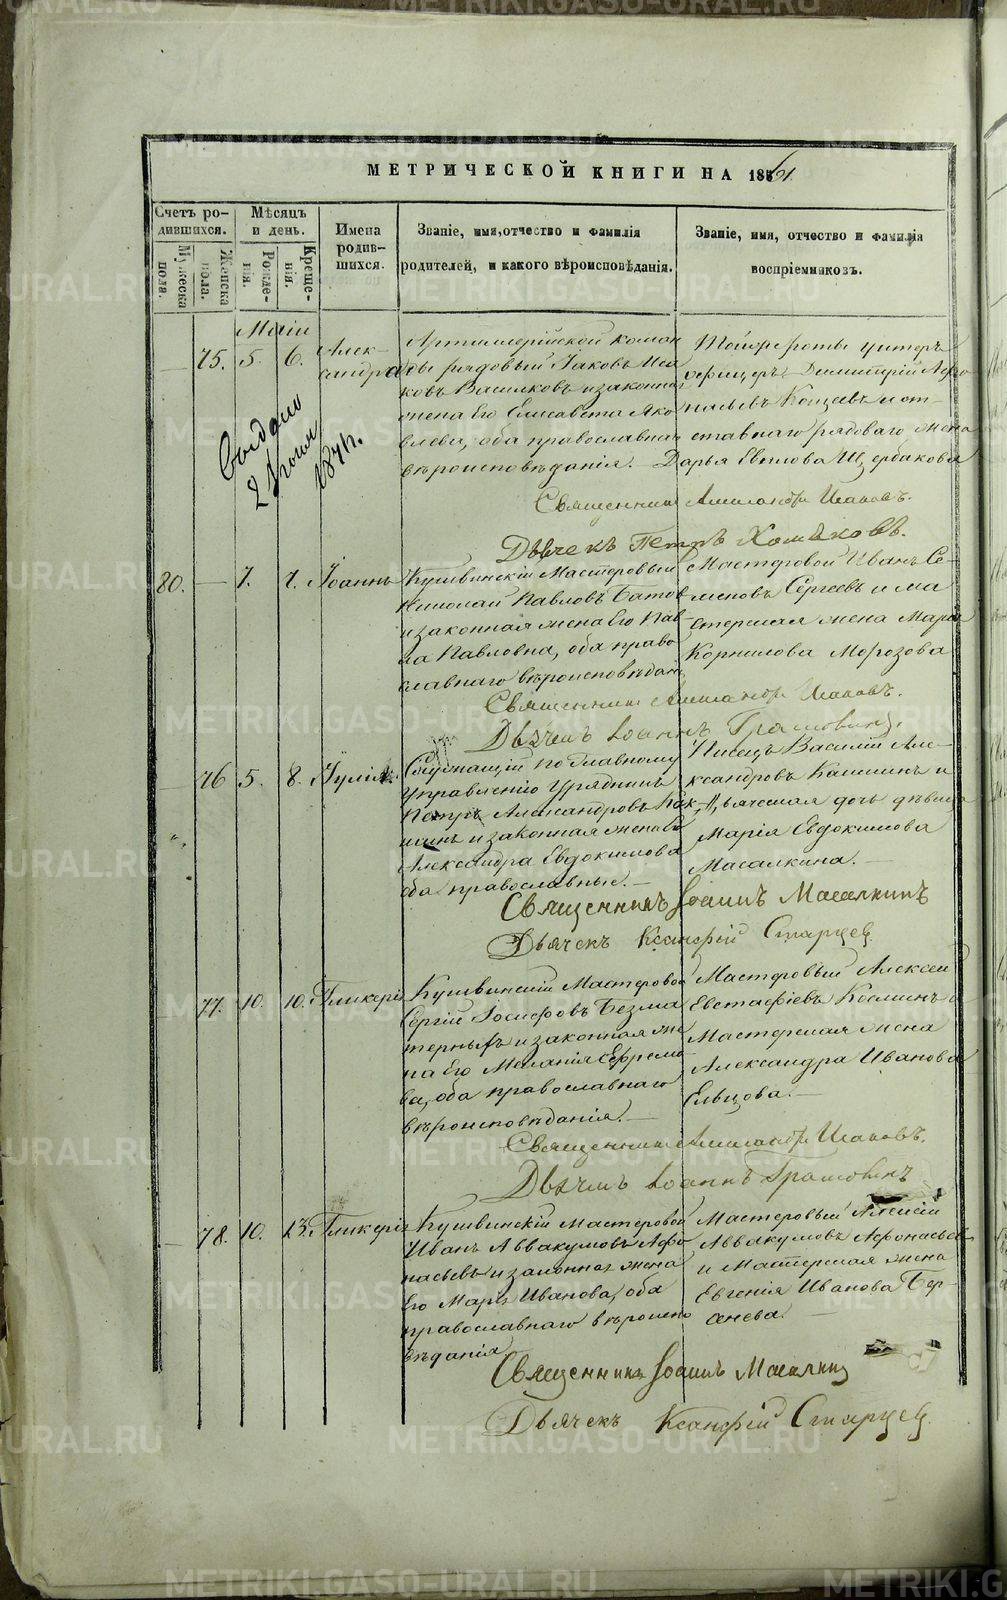 МЕТРИЧЕСКОЙ КНИГИ НА 1861
Счетъ ро-
дившихся.
Мужеска
пола.
Женска
пола.
Мѣсяцъ
и день.
Рожде-
нія.
Креще-
нія.
Имена
родив-
шихся.
Званіе, имя, отчество и фамилія
родителей, и какого вѣроисповѣданія.
Званіе, имя, отчество и фамилія
воспріемниковъ.
Маій
75. 5. 6. Алек-
сандра
Артиллерійской коман
ды рядовый Іаковъ Иса
ковъ Васильовъ и законная
жена Его Елисавета Яко
влева, оба православнаго
вѣроисповѣданія.
Той же роты унтеръ
офицеръ Димитрій Афо
насьевъ Кощеевъ и от-
ставнаго рядоваго жена
Дарья Евилова Щербакова
Выдано
2 Іюля
1871 г.
Священникъ Александръ Исаковъ.
Дьячекъ Петръ Хомяковъ.
80. — 7. 7. Іоаннъ
Кушвинскій Мастеровый
Николай Павловъ Батов
и законная жена Его Пав
ла Павловна, оба право
славнаго вѣроисповѣданія
Мастеровой Иванъ Се-
меновъ Сергеевъ и ма
стерская жена Марія
Корнилова Морозова
Священникъ Александръ Исаковъ.
Дьячекъ Іоаннъ Грамовинъ.
76 5. 8. Іулія.
Служащій по Главному
Управленію Урядникъ
Петръ Александровъ Как-
шинъ и законная жена Его
Александра Евдокимова
оба православные.
Писецъ Василій Але-
ксандровъ Кашинъ и
Дьяческая дочь дѣвица
Марія Евдокимова
Масалкина.
Священникъ Іоаннъ Масалкинъ
Дьячекъ Ксанфій Старцев
77. 10. 10. Гликерія
Кушвинскій Мастеровой
Сергій Іосифовъ Безма
терныхъ и законная же
на Его Меланія Ефремо
ва, оба православнаго
вѣроисповѣданія.
Мастеровый Алексей
Евстафіевъ Космин и
Мастерская жена
Александра Иванова
Ельцова.
Священникъ Александръ Исаковъ.
Дьячекъ Іоаннъ Грамовинъ
78. 10. 13. Гликерія
Кушвинскій Мастеровой
Иванъ Аввакумовъ Афо
насьевъ и законная жена
Его Марія Иванова, оба
православнаго вѣроиспо
вѣданія
Мастеровый Алексій
Аввакумовъ Афонасьев
и Мастерская жена
Евгенія Иванова Бер-
сенева.
Священникъ Іоаннъ Масалкин
Дьячекъ Ксанфій Старцев.
METRIKI.GASO-URAL.RU